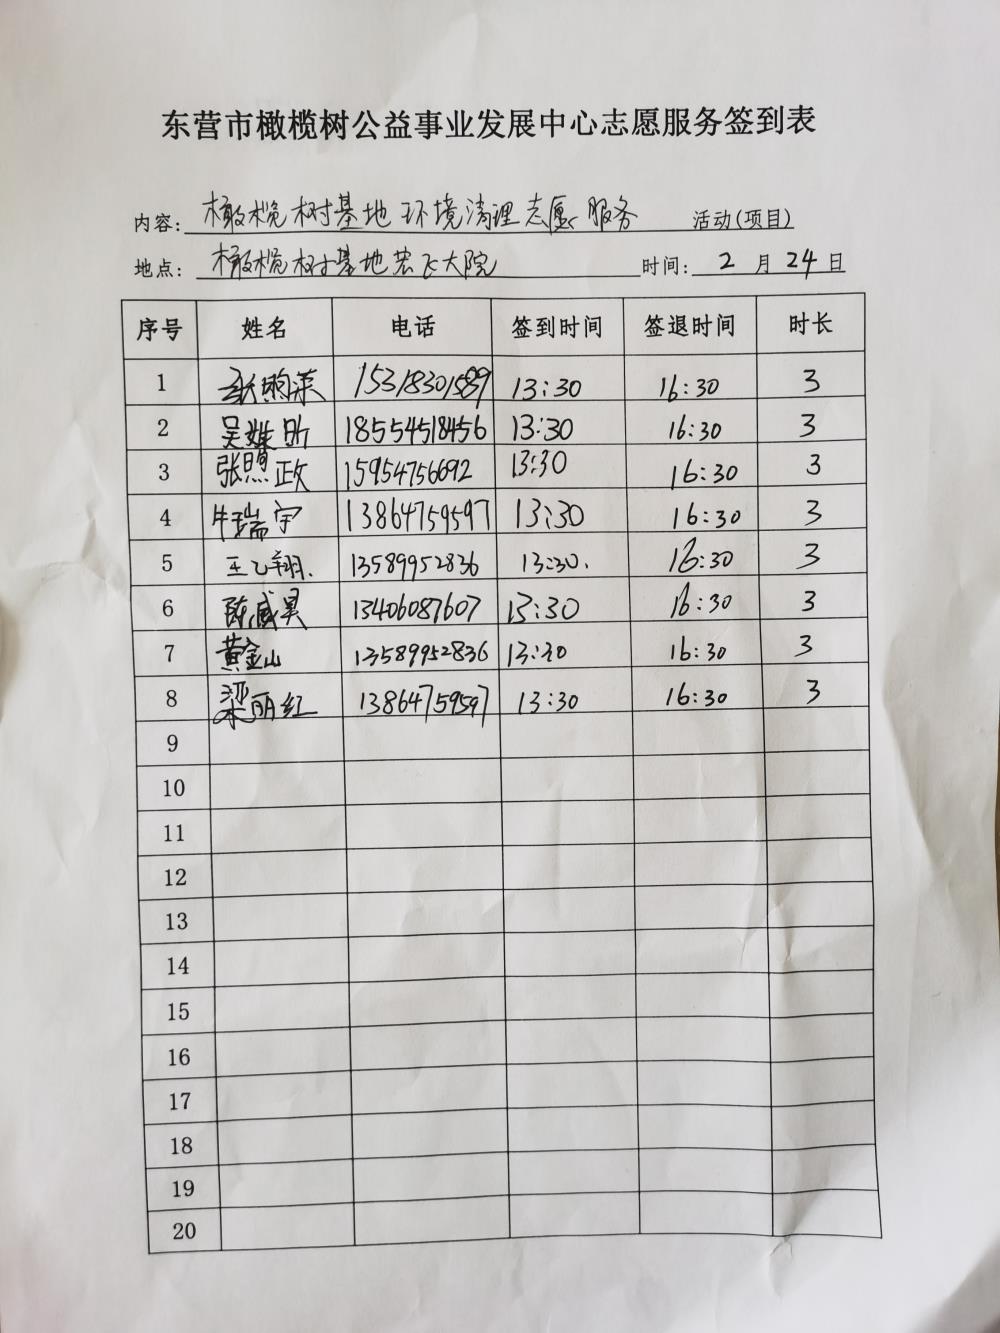 东营市橄榄树公益事业发展中心志愿服务签到表
内容: 橄榄树基地环境清理志愿服务 活动(项目)
地点: 橄榄树基地宏飞大院 时间: 2 月 24 日
序号 姓名 电话 签到时间 签退时间 时长
1 15318301589 13:30 16:30 3
2 吴姝昕 18554518456 13:30 16:30 3
3 张照政 15954756692 13:30 16:30 3
4 牛瑞宇 13864759597 13:30 16:30 3
5 王乙翔. 13589952836 13:30. 16:30 3
6 陈威昊 13406087607 13:30 16:30 3
7 黄金山 13589952836 13:30 16:30 3
8 梁丽红 13864759597 13:30 16:30 3
9
10
11
12
13
14
15
16
17
18
19
20